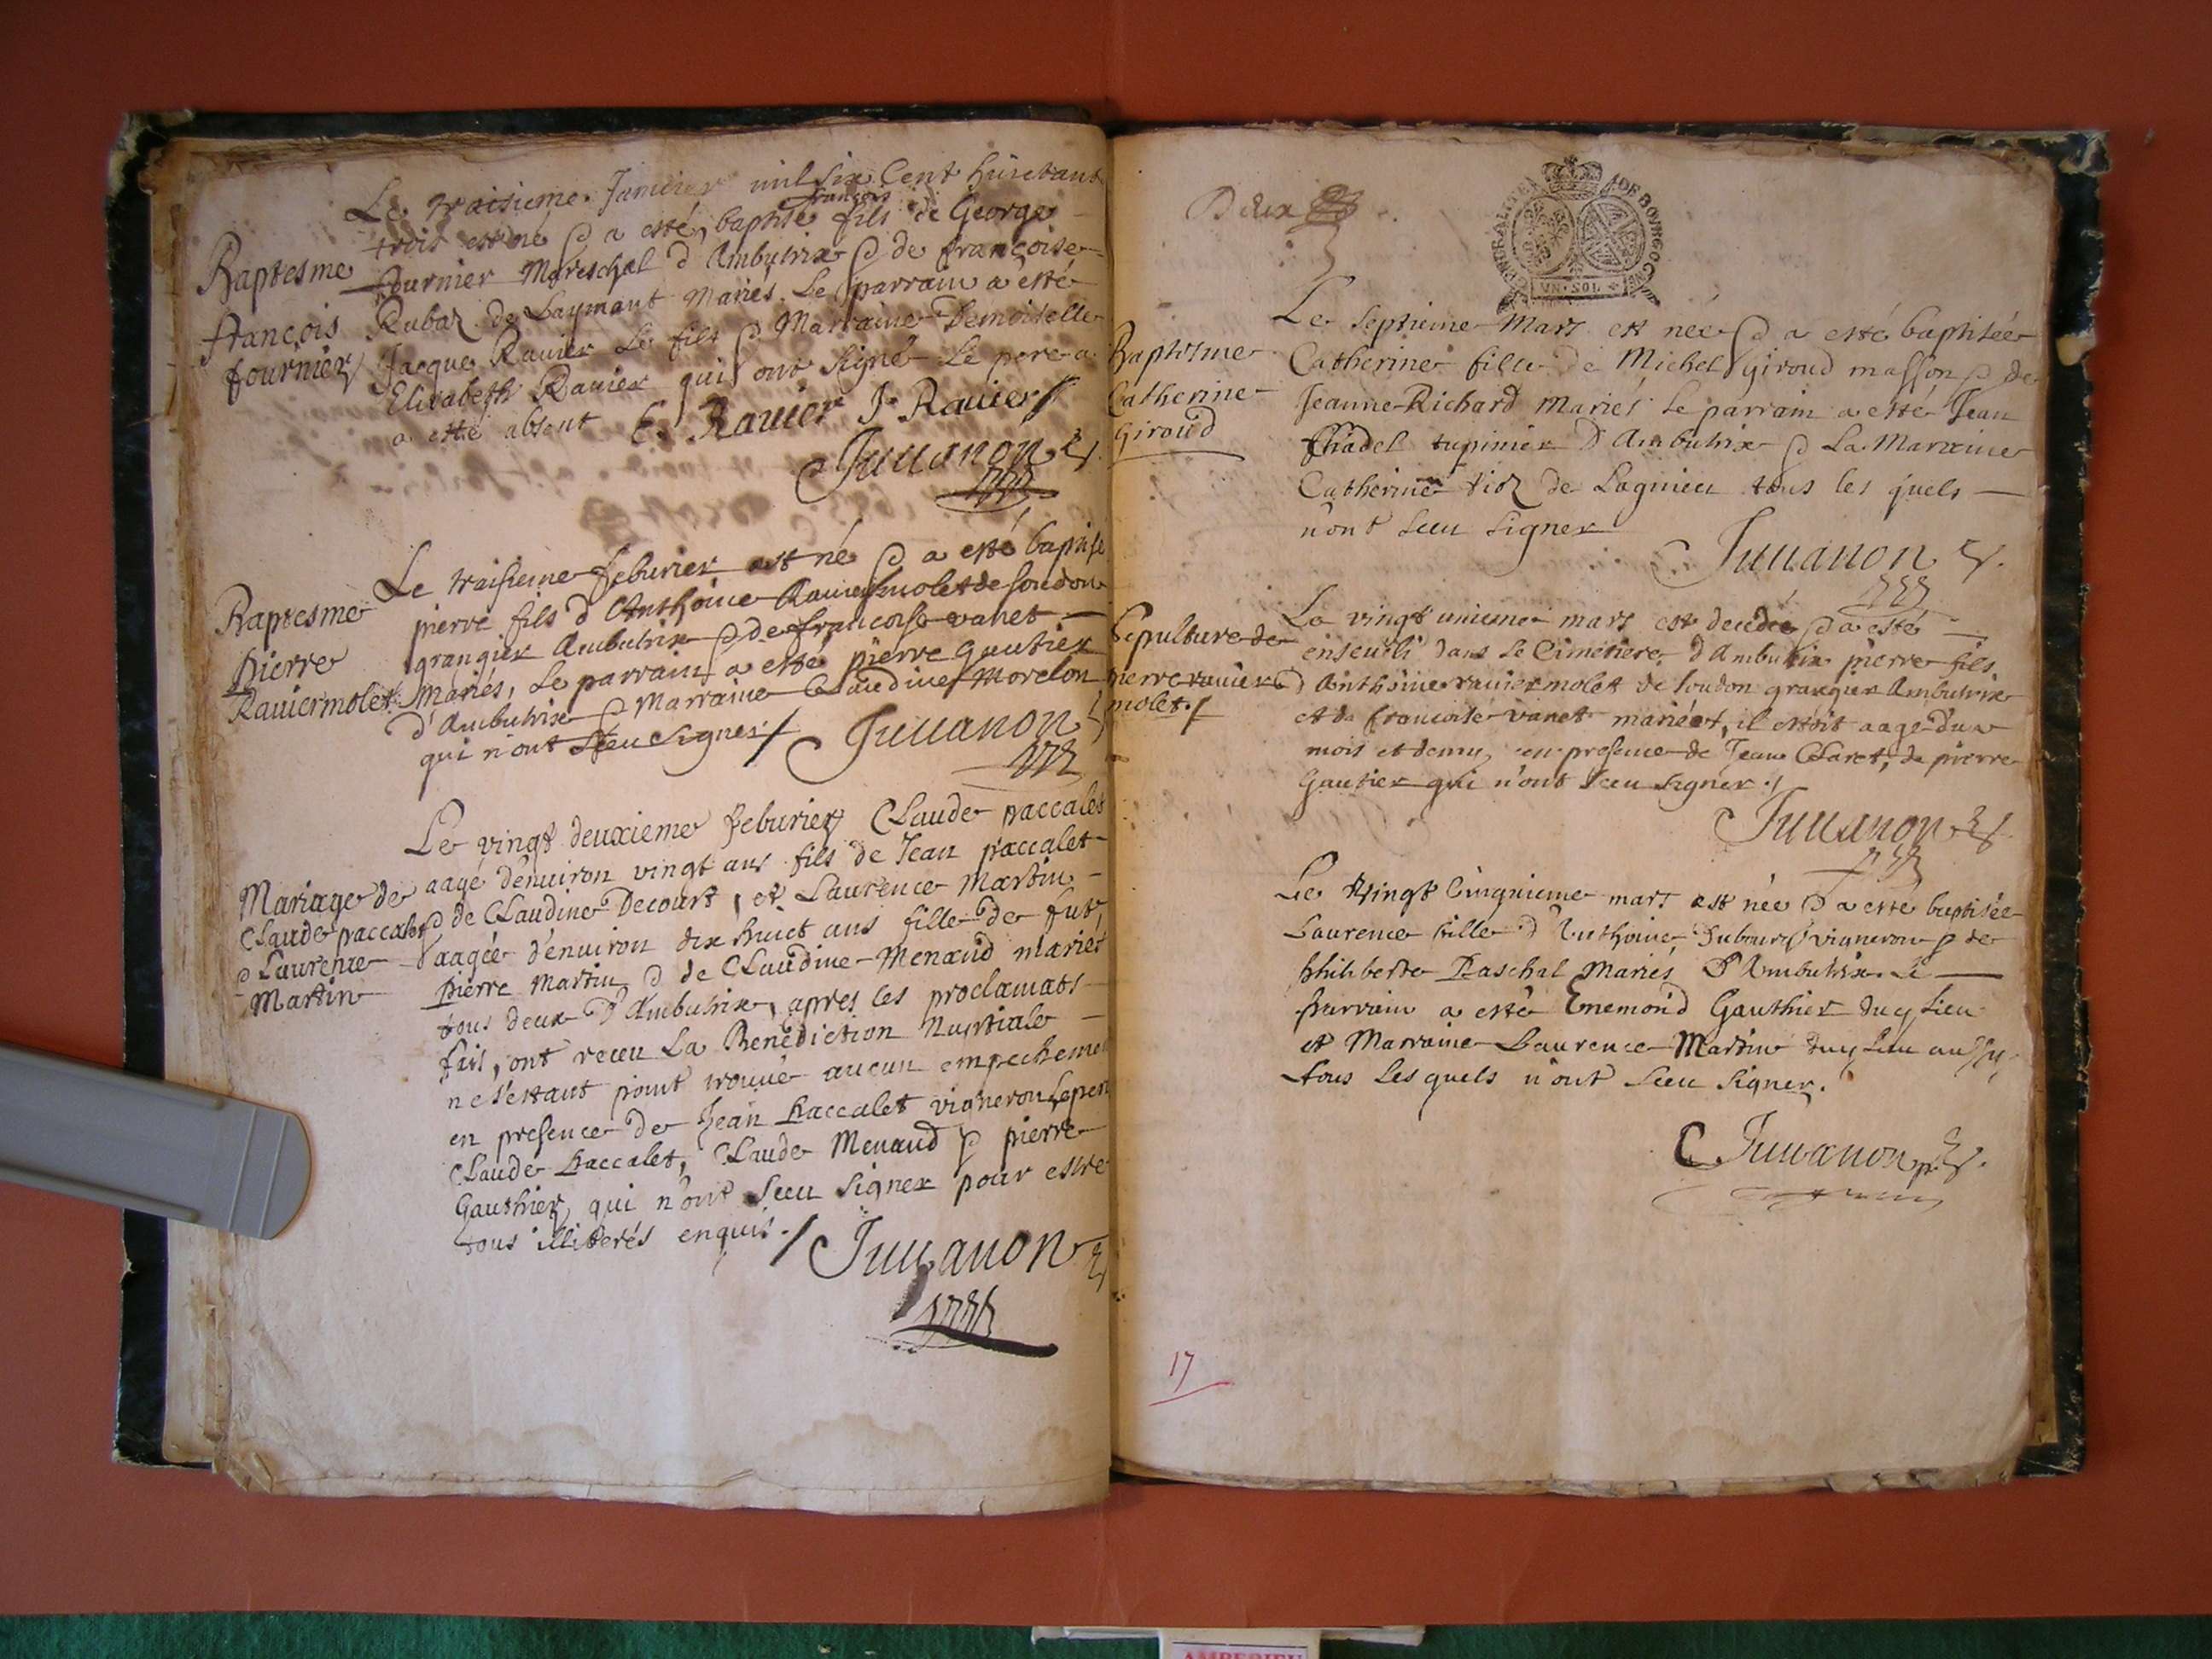 Le traisieme Januier mil six Cent huictante
trois est né & a esté baptisé françois fils de George
fournier Mareschal d'Ambutrix & de françoise
Rubaz de Laymant Mariés. Le parrain a esté
Jacque Rauier Le fils & Marraine Demoiselle
Elisabeth Rauier qui ont signé Le pere a
a esté absent E. Rauier J. Rauier
Juuanon
Baptesme
françois
fournier
Le traisieme feburier est né & a esté baptisé
pierre fils d'Anthoine Rauiermolet de soudon
grangier Ambutrix & de francoise vanet
Mariés, Le parrain a esté pierre Gautier
d'Ambutrix & Marraine Claudine Morelon
qui n'ont sceu signer /
Juuanon
Baptesme
pierre
Rauiermolet
Le vingt deuxieme feburier Claude paccalet
aagé d'enuiron vingt ans fils de Jean paccalet
& de Claudine Decourt, et Laurence Martin
aagée d'enuiron dix huict ans fille de fut
pierre Martin & de Claudine Menaud mariés
tous deux d'Ambutrix, apres les proclamats
fais, ont receu La Benediction Nuptiale
ne s'estant point trouué aucun empechemen
en presence de Jean Paccalet vigneron, Le pere
Claude Paccalet, Claude Menaud & pierre
Gauthier, qui n'ont sceu signer pour estre
tous illiterés enquis. /
Juuanon
Mariage de
Claude paccalet
& Laurence
Martin
Deux
GENERALITE DE BOVRGOGNE
VN SOL
Le septieme Mars est née & a esté baptisée
Catherine fille de Michel giroud masson & de
Jeanne Richard Mariés Le parrain a esté Jean
tupinier d'Ambutrix & La Marraine
Catherine de Lagnieu tous les quels
n'ont sceu signer
Juuanon
Baptesme
Catherine
Giroud
Le vingt unieme mars est decedée & a esté
enseueli dans le Cimetiere d'Ambutrix pierre fils
d'Anthoine rauiermolet de soudon grangier Ambutrix
et de francoise vanet mariées, il estoit aagé d'un
mois et demy, en presence de Jean Claret, de pierre
Gautier qui n'ont sceu signer /
Juuanon
Sepulture de
pierre rauier
molet /
Le vingt Cinquieme mars est née & a esté baptisée
Laurence fille d'Anthoine Dubourg vigneron & de
philiberte Paschal Mariés d'Ambutrix. Le
parrain a esté Enemond Gauthier du lieu
et Marraine Laurence Martin du lieu aussy
tous Les quels n'ont sceu signer.
C. Juuanon
17
AMBERIEU